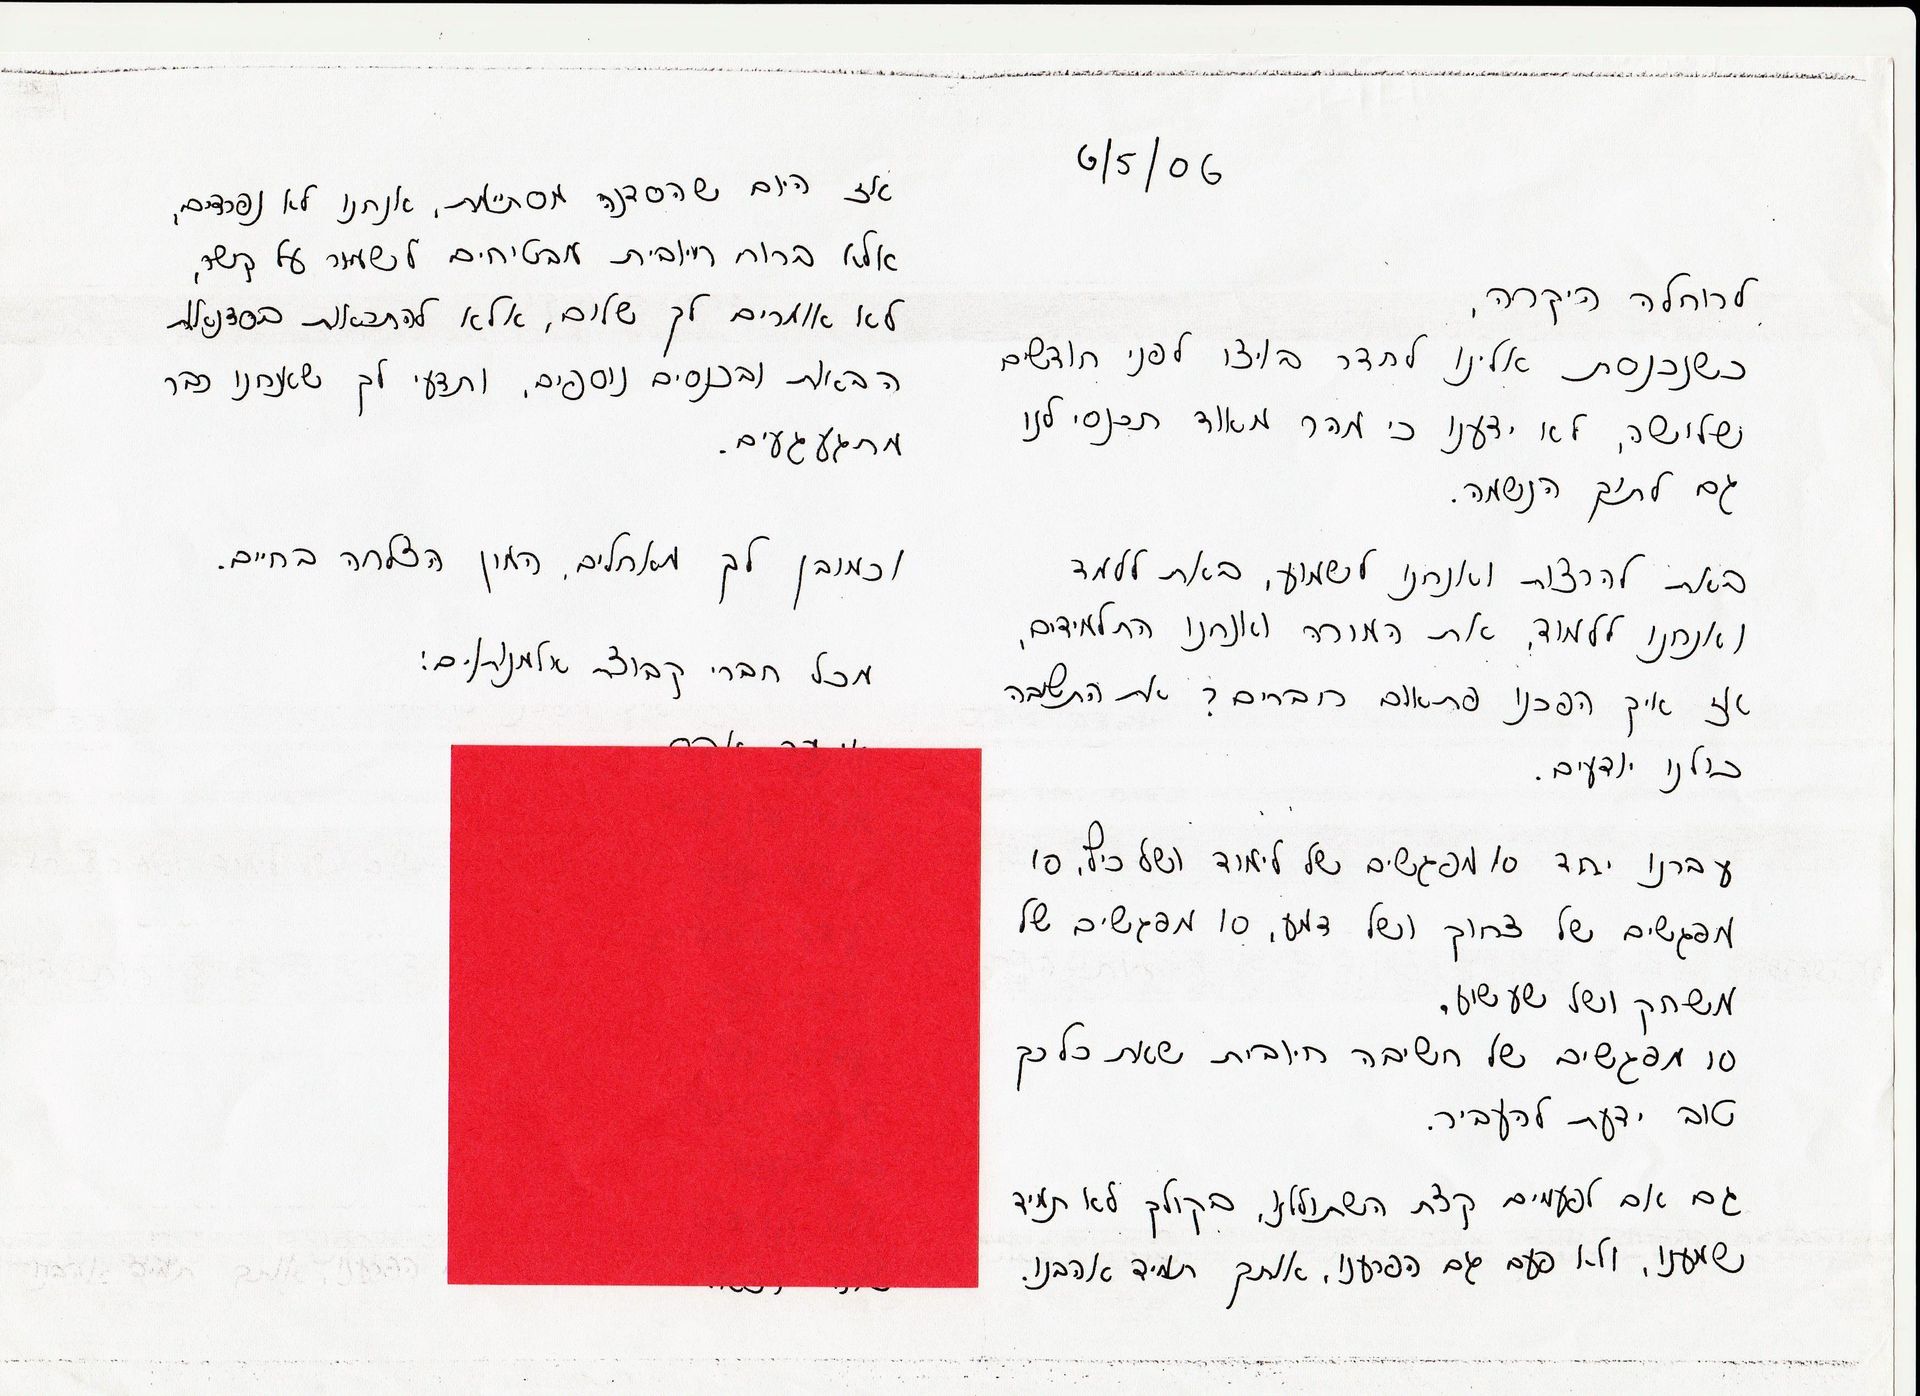 6/5/06
לרוחלה היקרה,
כשנכנסת אלינו לחדר בויצו לפני חודשים
שלושה, לא ידענו כי מהר מאוד תכנסי לנו
גם לתוך הנשמה.
באת להרצות ואנחנו לשמוע, באת ללמד
ואנחנו ללמוד, את המורה ואנחנו התלמידים,
אז איך הפכנו פתאום חוברים? את התשובה
כולנו יודעים.
עברנו יחד 10 מפגשים של לימוד ושל כיף, 10
מפגשים של צחוק ושל דמע, 10 מפגשים של
משחק ושל שעשוע.
10 מפגשים של חשיבה חיובית שאת כל כך
טוב ידעת להעביר.
גם אם לפעמים קצת השתוללנו, בקולך לא תמיד
שמענו, ולא פעם גם הפרענו, אותך תמיד אהבנו.
אז היום שהסדנה מסתיימת, אנחנו לא נפרדים,
אלא ברוח חיובית מבטיחים לשמור על קשר,
לא אומרים לך שלום, אלא להתראות בסדנאות
הבאות ובכנסים נוספים, ותדעי לך שאנחנו כבר
מתגעגעים.
וכמובן לך מאחלים, המון הצלחה בחיים.
מכל חברי קבוצת אלמנות/ים: